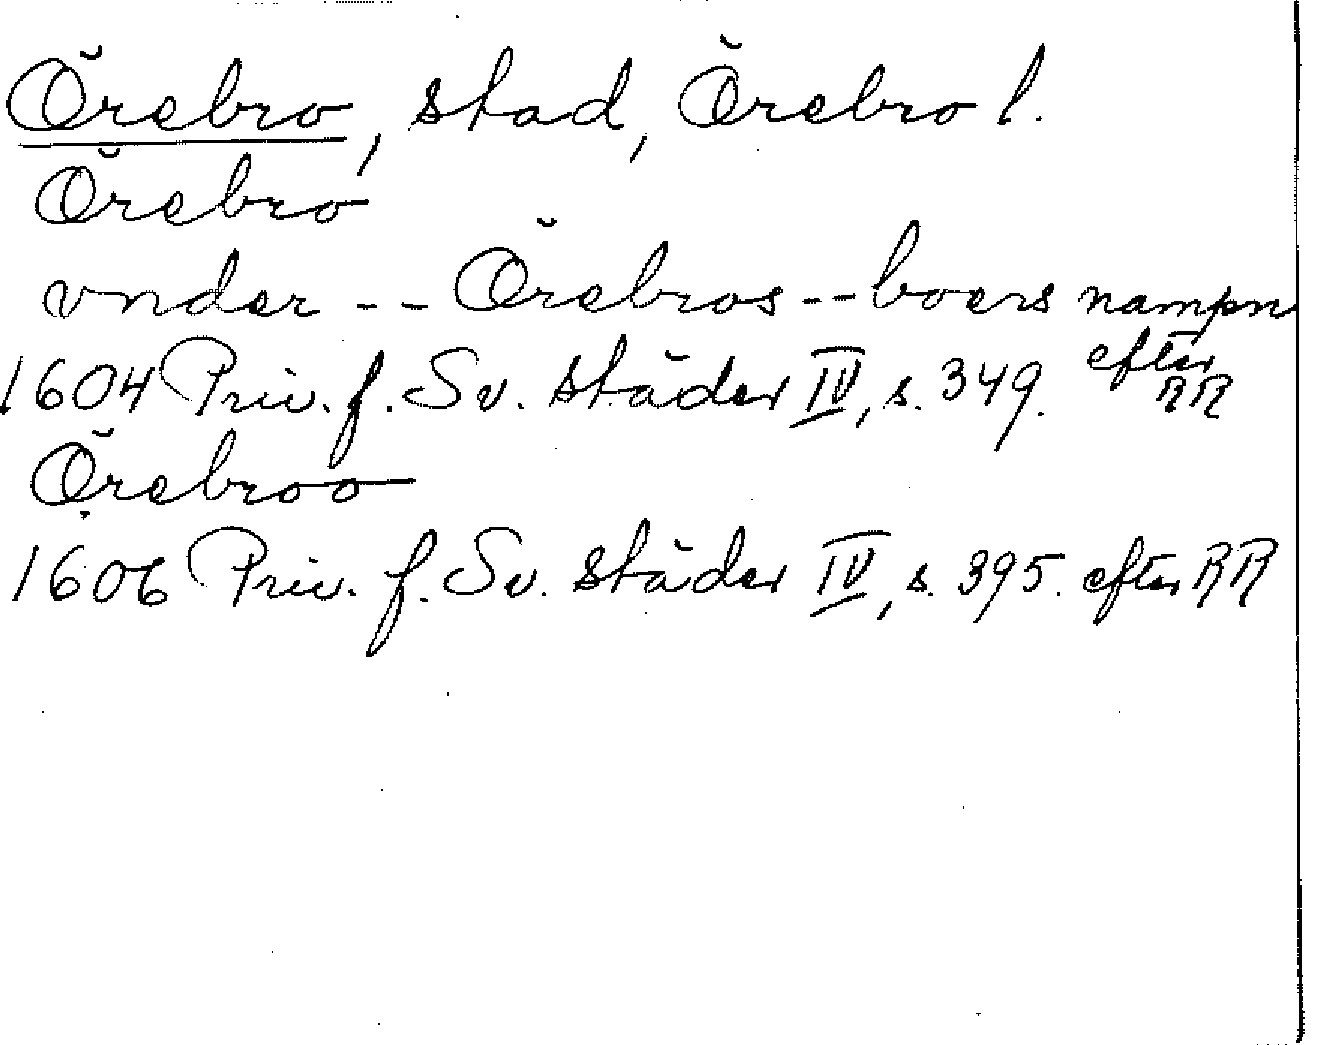 Örebro, stad, Örebro l.
Örebro
vnder -- Örebros -- boers nampn
1604 Priv. f. Sv. städer IV, s. 349. efter RR
Örebroo
1606 Priv. f. Sv. städer IV, s. 395. efter RR